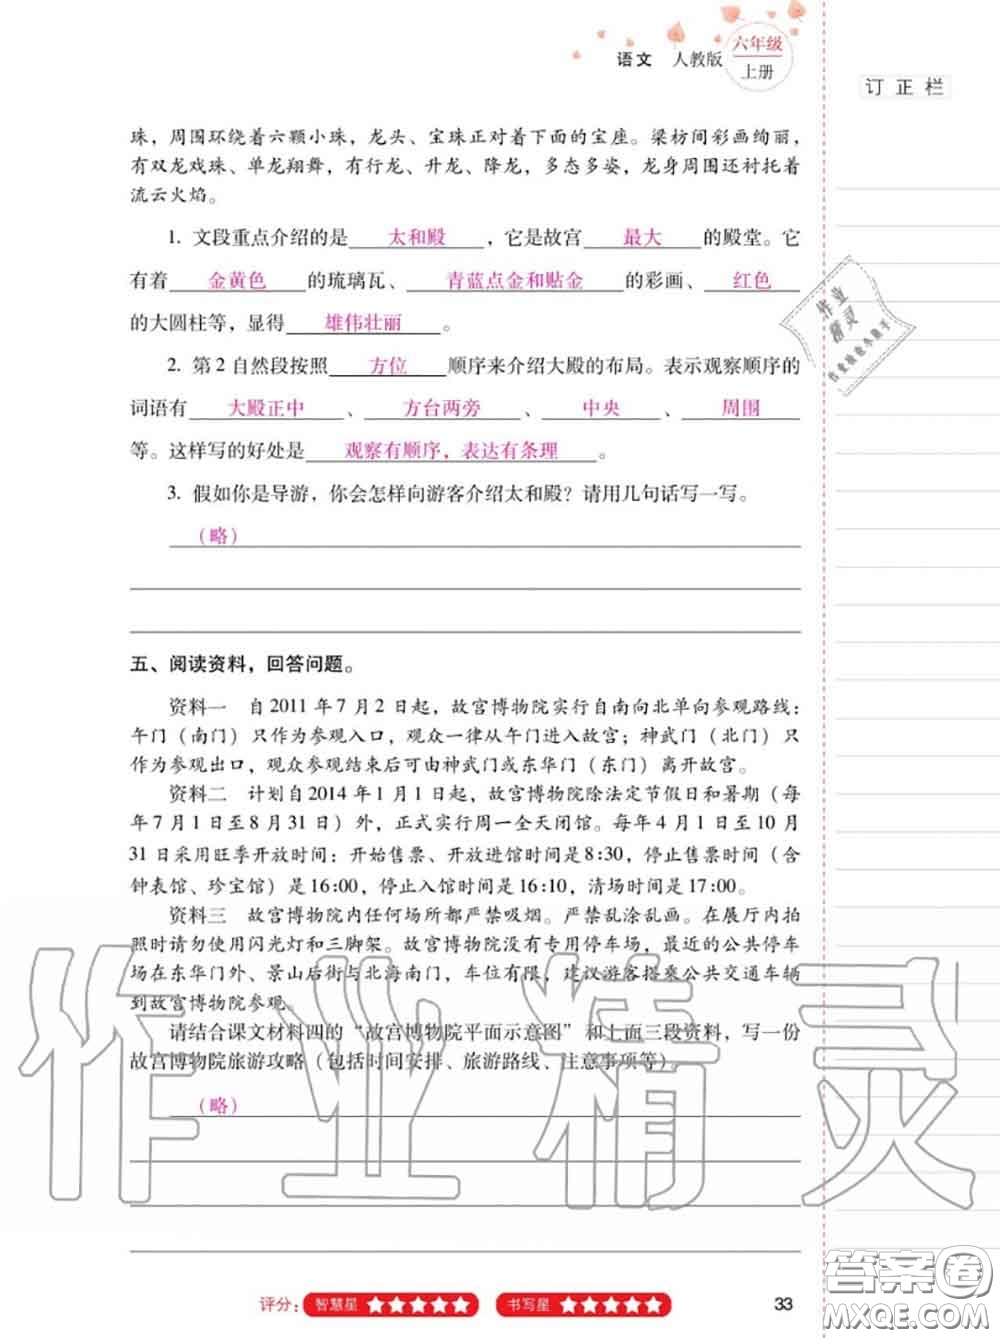 语文 人教版 六年级
上册
订正栏
珠，周围环绕着六颗小珠，龙头、宝珠正对着下面的宝座。梁枋间彩画绚丽，
有双龙戏珠、单龙翔舞，有行龙、升龙、降龙，多态多姿，龙身周围还衬托着
流云火焰。
1. 文段重点介绍的是 太和殿 ，它是故宫 最大 的殿堂。它
有着 金黄色 的琉璃瓦、 青蓝点金和贴金 的彩画、 红色
的大圆柱等，显得 雄伟壮丽 。
2. 第 2 自然段按照 方位 顺序来介绍大殿的布局。表示观察顺序的
词语有 大殿正中 、 方台两旁 、 中央 、 周围
等。这样写的好处是 观察有顺序，表达有条理 。
3. 假如你是导游，你会怎样向游客介绍太和殿？请用几句话写一写。
（略）
五、阅读资料，回答问题。
资料一 自 2011 年 7 月 2 日起，故宫博物院实行自南向北单向参观路线：
午门（南门）只作为参观入口，观众一律从午门进入故宫；神武门（北门）只
作为参观出口，观众参观结束后可由神武门或东华门（东门）离开故宫。
资料二 计划自 2014 年 1 月 1 日起，故宫博物院除法定节假日和暑期（每
年 7 月 1 日至 8 月 31 日）外，正式实行周一全天闭馆。每年 4 月 1 日至 10 月
31 日采用旺季开放时间：开始售票、开放进馆时间是 8:30，停止售票时间（含
钟表馆、珍宝馆）是 16:00，停止入馆时间是 16:10，清场时间是 17:00。
资料三 故宫博物院内任何场所都严禁吸烟。严禁乱涂乱画。在展厅内拍
照时请勿使用闪光灯和三脚架。故宫博物院没有专用停车场，最近的公共停车
场在东华门外、景山后街与北海南门，车位有限，建议游客搭乘公共交通车辆
到故宫博物院参观。
请结合课文材料四的“故宫博物院平面示意图”和上面三段资料，写一份
故宫博物院旅游攻略（包括时间安排、旅游路线、注意事项等）。
（略）
作业精灵
评分： 智慧星 ★★★★★ 书写星 ★★★★★ 33
答案圈
MXQE.COM